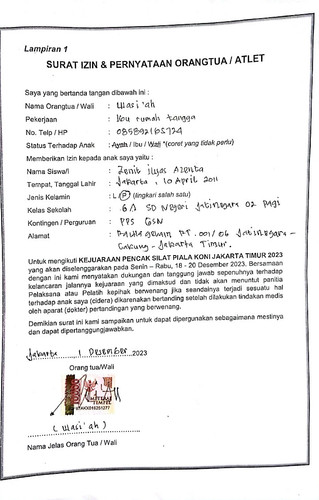 Lampiran 1
SURAT IZIN & PERNYATAAN ORANGTUA / ATLET
Saya yang bertanda tangan dibawah ini :
Nama Orangtua / Wali : Wasi'ah
Pekerjaan : Ibu rumah tangga
No. Telp / HP : 085892165724
Status Terhadap Anak : Ayah / Ibu / Wali *(coret yang tidak perlu)
Memberikan Izin kepada anak saya yaitu :
Nama Siswa/i : Zenit Ilyas Azenta
Tempat, Tanggal Lahir : Jakarta, 10 April 2011
Jenis Kelamin : L / P (lingkari salah satu)
Kelas Sekolah : 6A SD Negeri Jatinegara 02 Pagi
Kontingen / Perguruan : PPS GSN
Alamat : RT. 001/06 Jatinegara-
Cakung - Jakarta Timur.
Untuk mengikuti KEJUARAAN PENCAK SILAT PIALA KONI JAKARTA TIMUR 2023
yang akan diselenggarakan pada Senin – Rabu, 18 - 20 Desember 2023. Bersamaan
dengan ini kami menyatakan dukungan dan tanggung jawab sepenuhnya terhadap
kelancaran jalannya kejuaraan yang dimaksud dan tidak akan menuntut panitia
Pelaksana atau Pelatih kepihak berwenang jika seandainya terjadi sesuatu hal
terhadap anak saya (cidera) dikarenakan bertanding setelah dilakukan tindakan medis
oleh aparat (dokter) pertandingan yang berwenang.
Demikian surat ini kami sampaikan untuk dapat dipergunakan sebagaimana mestinya
dan dapat dipertanggungjawabkan.
Jakarta 1 Desember 2023
Orang tua/Wali
METERAI
TEMPEL
(Wasi'ah)
Nama Jelas Orang Tua / Wali